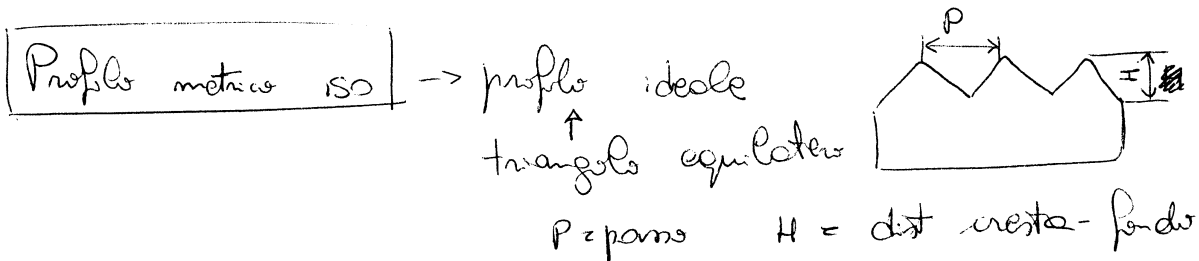 P
Profilo metrico ISO -> profilo ideale
H
↑
triangolo equilatero
P = passo H = dist cresta - fondo